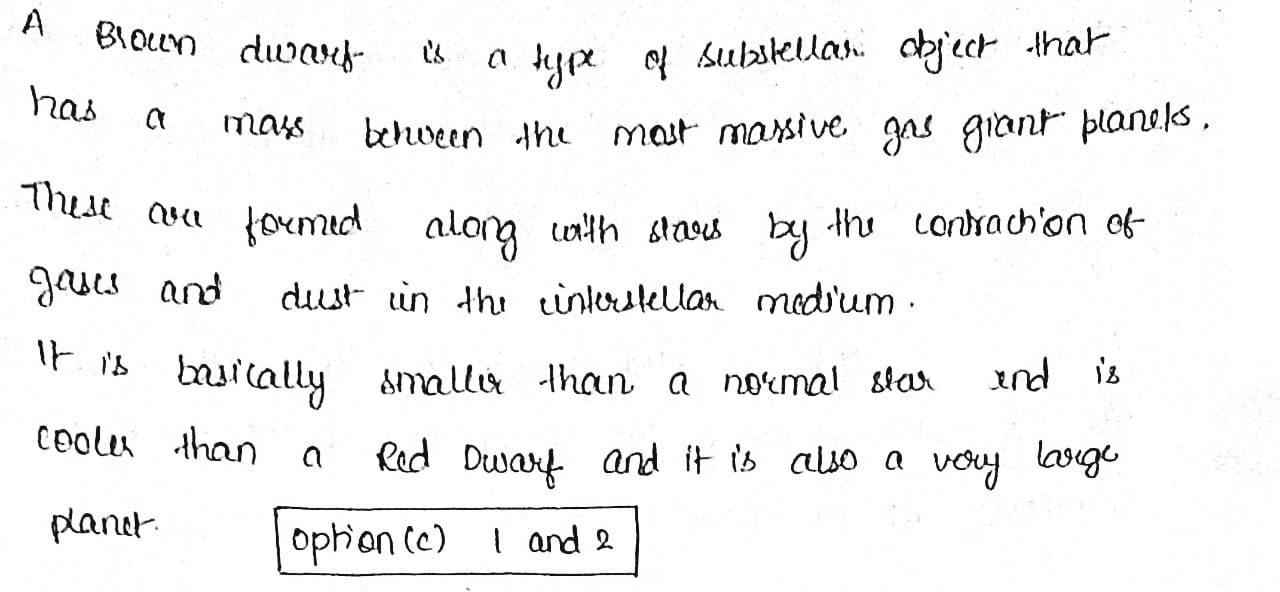 A Brown dwarf is a type of substellar object that
has a mass between the most massive gas giant planets.
These are formed along with stars by the contraction of
gases and dust in the interstellar medium.
It is basically smaller than a normal star and is
cooler than a Red Dwarf and it is also a very large
planet.
option (c) 1 and 2